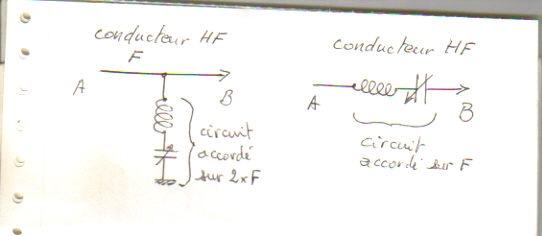 conducteur HF
F
A
B
circuit
accordé
sur 2xF
conducteur HF
A
B
circuit
accordé sur F